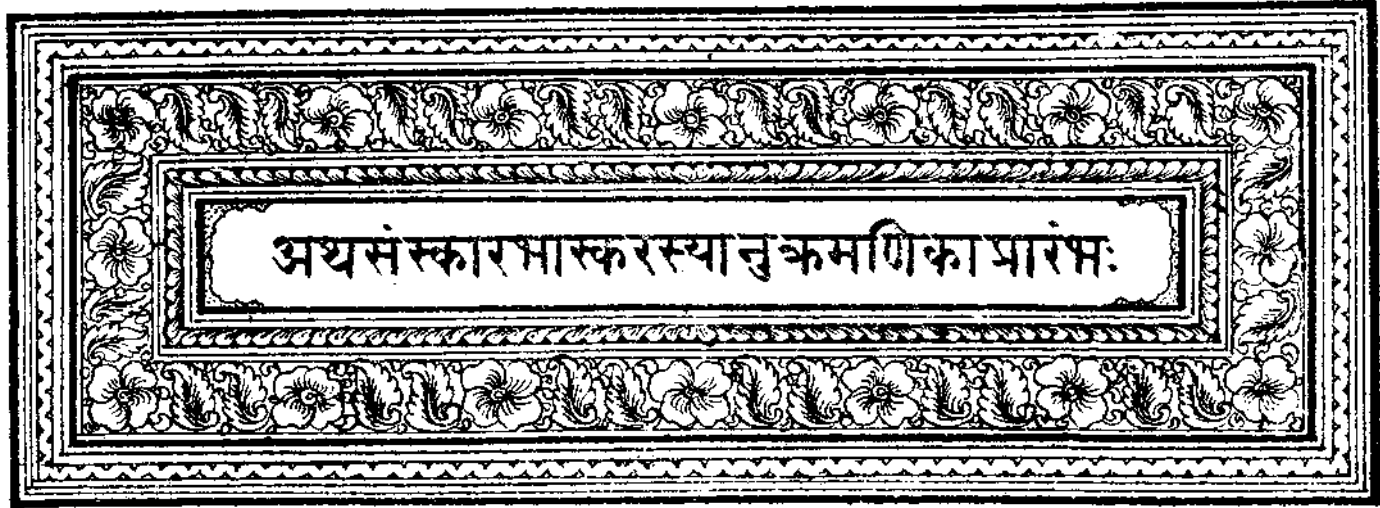 अथसंस्कारभास्करस्यानुक्रमणिकाप्रारंभः